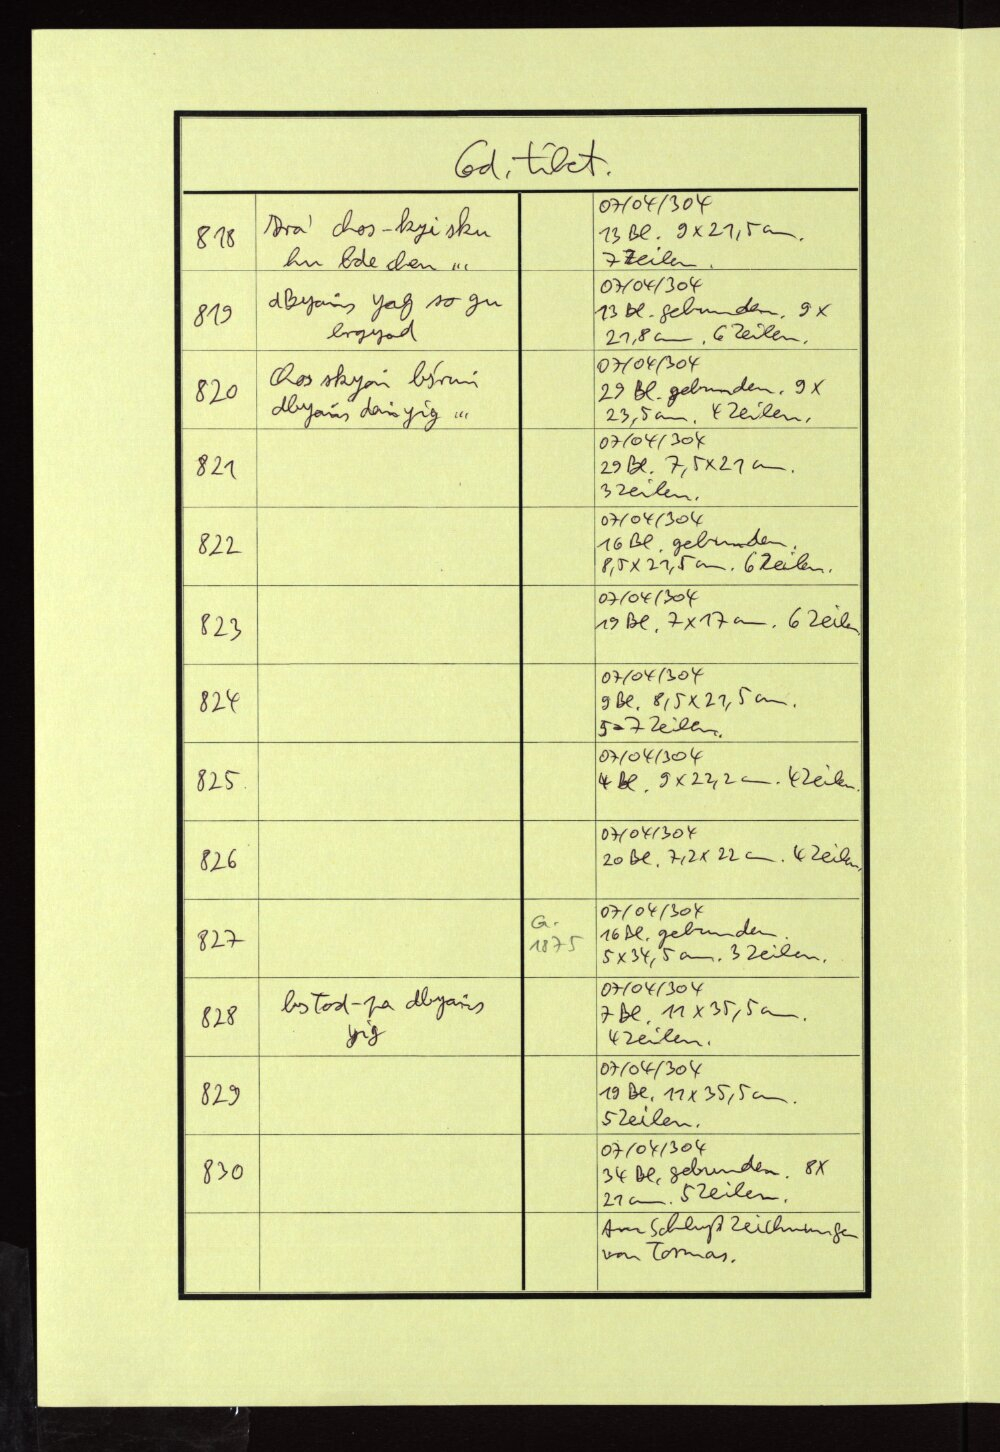 Cod. tibet.
818
chos-kyi sku
bde chen ...
07/04/304
13 Bl. 9 x 21,5 cm.
7 Zeilen.
819
dByaṅs yig so gu
brgyad
07/04/304
13 Bl. gebunden. 9 x
21,8 cm. 6 Zeilen.
820
Chos skyoṅ bsruṅ
dbyaṅs daṅ yig ...
07/04/304
29 Bl. gebunden. 9 x
23,5 cm. 4 Zeilen.
821
07/04/304
29 Bl. 7,5 x 21 cm.
3 Zeilen.
822
07/04/304
16 Bl. gebunden.
8,5 x 21,5 cm. 6 Zeilen.
823
07/04/304
19 Bl. 7 x 17 cm. 6 Zeilen
824
07/04/304
9 Bl. 8,5 x 21,5 cm.
5-7 Zeilen.
825
07/04/304
4 Bl. 9 x 22,2 cm. 4 Zeilen.
826
07/04/304
20 Bl. 7,2 x 22 cm. 4 Zeilen.
827
G.
1875
07/04/304
16 Bl. gebunden.
5 x 34,5 cm. 3 Zeilen.
828
bsTod-pa dbyaṅs
yig
07/04/304
7 Bl. 11 x 35,5 cm.
4 Zeilen.
829
07/04/304
19 Bl. 11 x 35,5 cm.
5 Zeilen.
830
07/04/304
34 Bl. gebunden. 8 x
21 cm. 5 Zeilen.
Am Schluß Zeichnungen
von Tormas.